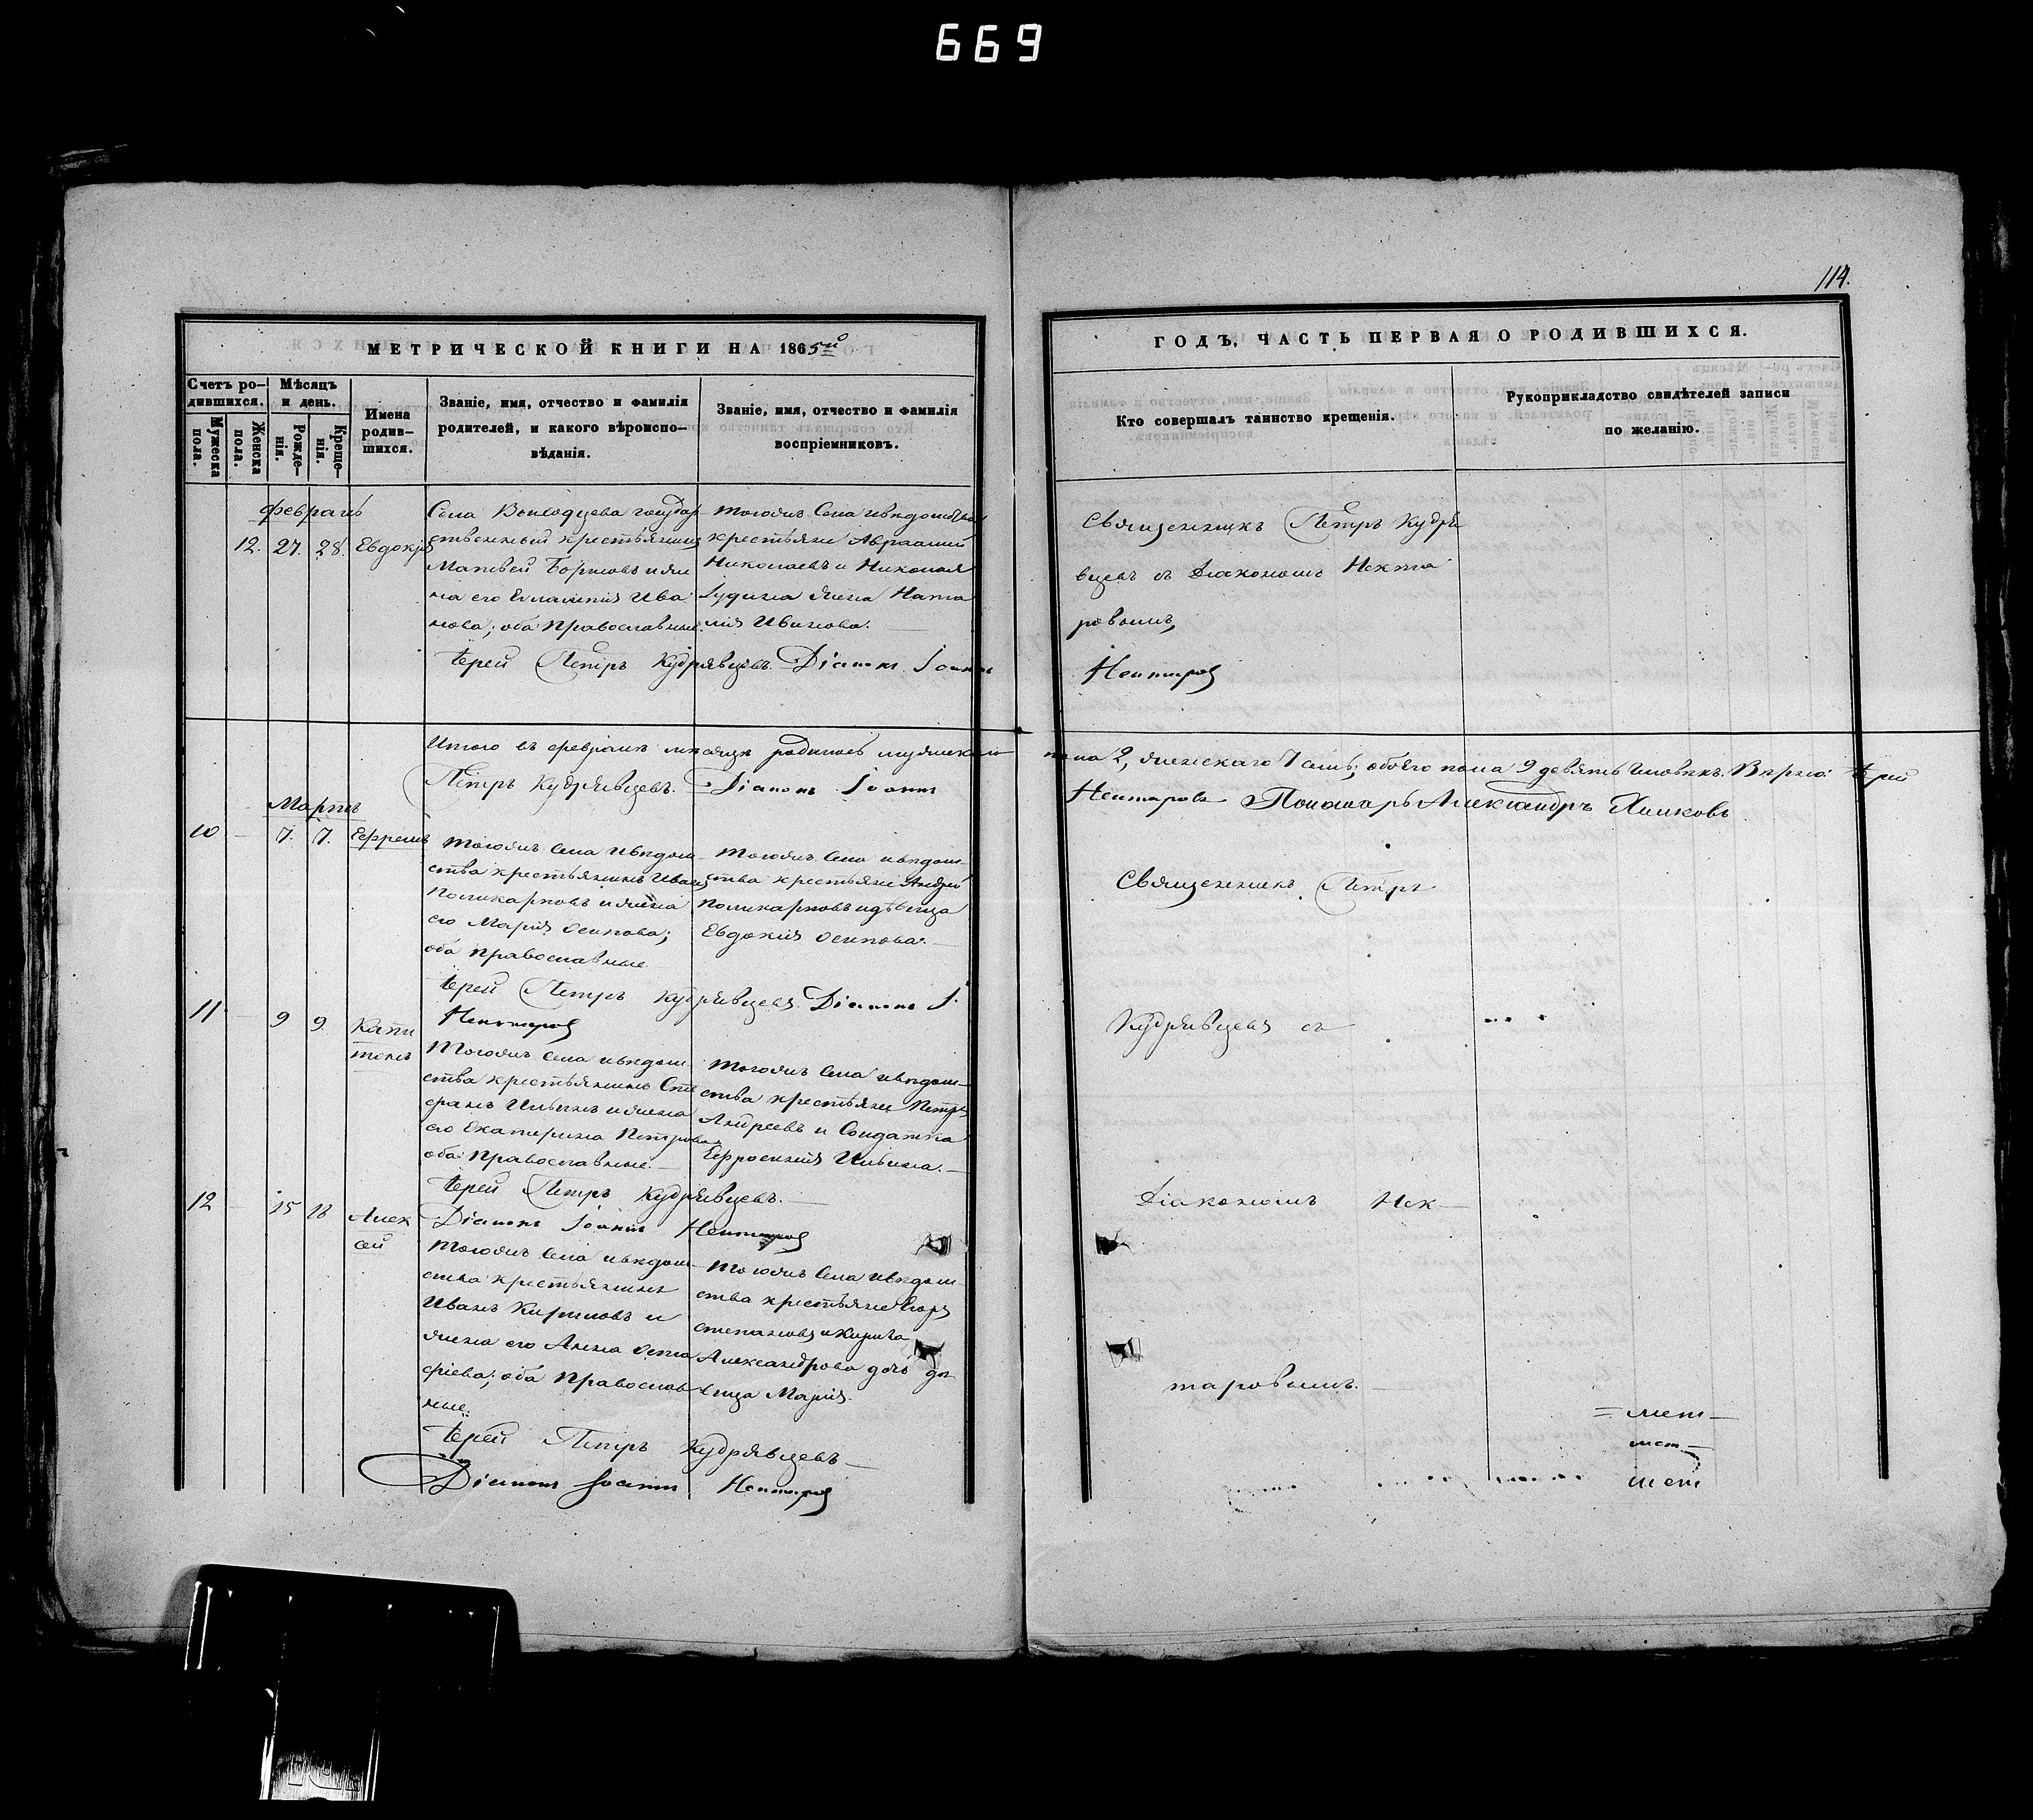 669
114.
МЕТРИЧЕСКОЙ КНИГИ НА 1865й
ГОДЪ, ЧАСТЬ ПЕРВАЯ О РОДИВШИХСЯ.
Счетъ ро-
дившихся.
Мужеска
пола.
Женска
пола.
Мѣсяцъ
и день.
Рожде-
нія.
Креще-
нія.
Имена
родив-
шихся.
Званіе, имя, отчество и фамилія
родителей, и какого вѣроиспо-
вѣданія.
Званіе, имя, отчество и фамилія
воспріемниковъ.
Кто совершалъ таинство крещенія.
Рукоприкладство свидѣтелей записи
по желанію.
Февраль
12. 27. 28. Евдокія
Села государ
ственный крестьянинъ
Матвей Борисовъ и же
на его Ива
нова; оба православные.
Тогожъ Села и вѣдомства
крестьяне Авраамий
Николаевъ и Николая
Іудина жена Ната
лія Иванова.
Іерей Петръ Кудрявцевъ. Діаконъ Іоаннъ
Священникъ Петръ Кудря
вцевъ съ Діакономъ Некта
ровымъ,
Нектаровъ
Итого въ февралѣ мѣсяцѣ родилось мужескаго
пола 2, женскаго 7 семь; обоего пола 9 девять человѣкъ. Вѣрно: Іерей
Петръ Кудрявцевъ. Діаконъ Іоаннъ
Нектаровъ Пономарь Александръ Хилковъ
Мартъ
10 7. 7. Ефремъ
Тогожъ Села и вѣдом
ства крестьянинъ Иванъ
Поликарповъ и жена
его Марія Осипова;
оба православные
Тогожъ Села и вѣдом
ства крестьяне Андрей
Поликарповъ и дѣвица
Евдокія Осипова.
Іерей Петръ Кудрявцевъ Діаконъ І.
Нектаровъ
Священникъ Петръ
11 9 9. Капи
тонъ
Тогожъ Села и вѣдом
ства крестьянинъ Сте
фанъ Ильинъ и жена
его Екатерина Петрова
оба православные.
Тогожъ Села и вѣдом
ства крестьяне Петръ
Андреевъ и Солдатка
Ефросинія Ильина.
Іерей Петръ Кудрявцевъ.
Діаконъ Іоаннъ Нектаровъ
Кудрявцевъ съ
12 15 Алек
сей
Тогожъ Села и вѣдом
ства крестьянинъ
Иванъ Кириловъ и
жена его Анна Оста
фіева; оба православ
ные.
Тогожъ Села и вѣдом
ства крестьяне
Степановъ и
Александрова дочь дѣ
вица Марія.
Іерей Петръ Кудрявцевъ
Діаконъ Іоаннъ Нектаровъ
Діакономъ Нек
таровымъ.